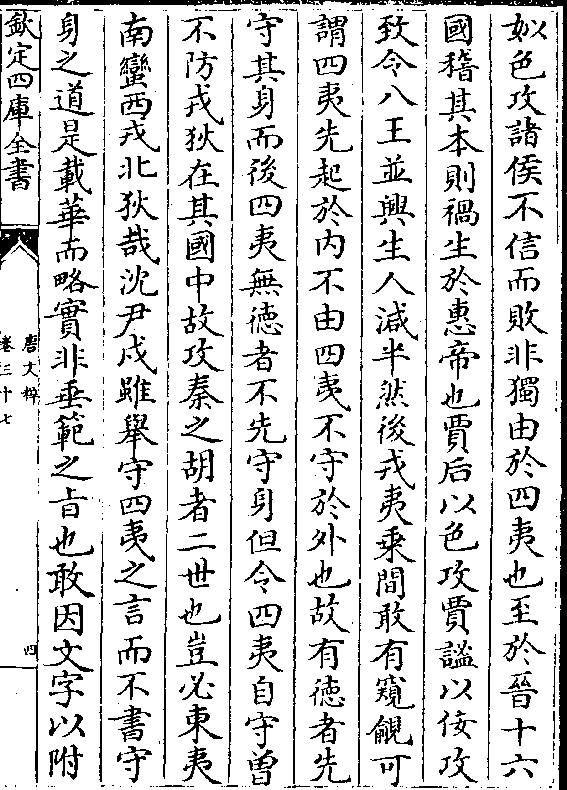 姒色攻諸侯不信而敗非獨由於四夷也至於晉十六
國稽其本則禍生於惠帝也賈后以色攻賈謐以佞攻
致令八王並興生人減半然後戎夷乘間敢有窺覦可
謂四夷先起於内不由四夷不守於外也故有徳者先
守其身而後四夷無徳者不先守身但令四夷自守曽
不防戎狄在其國中故攻秦之胡者二世也豈必東夷
南蠻西戎北狄哉沈尹戍雖舉守四夷之言而不書守
身之道是載華而略實非垂範之旨也敢因文字以附
欽定四庫全書
唐文粹
卷三十七
四